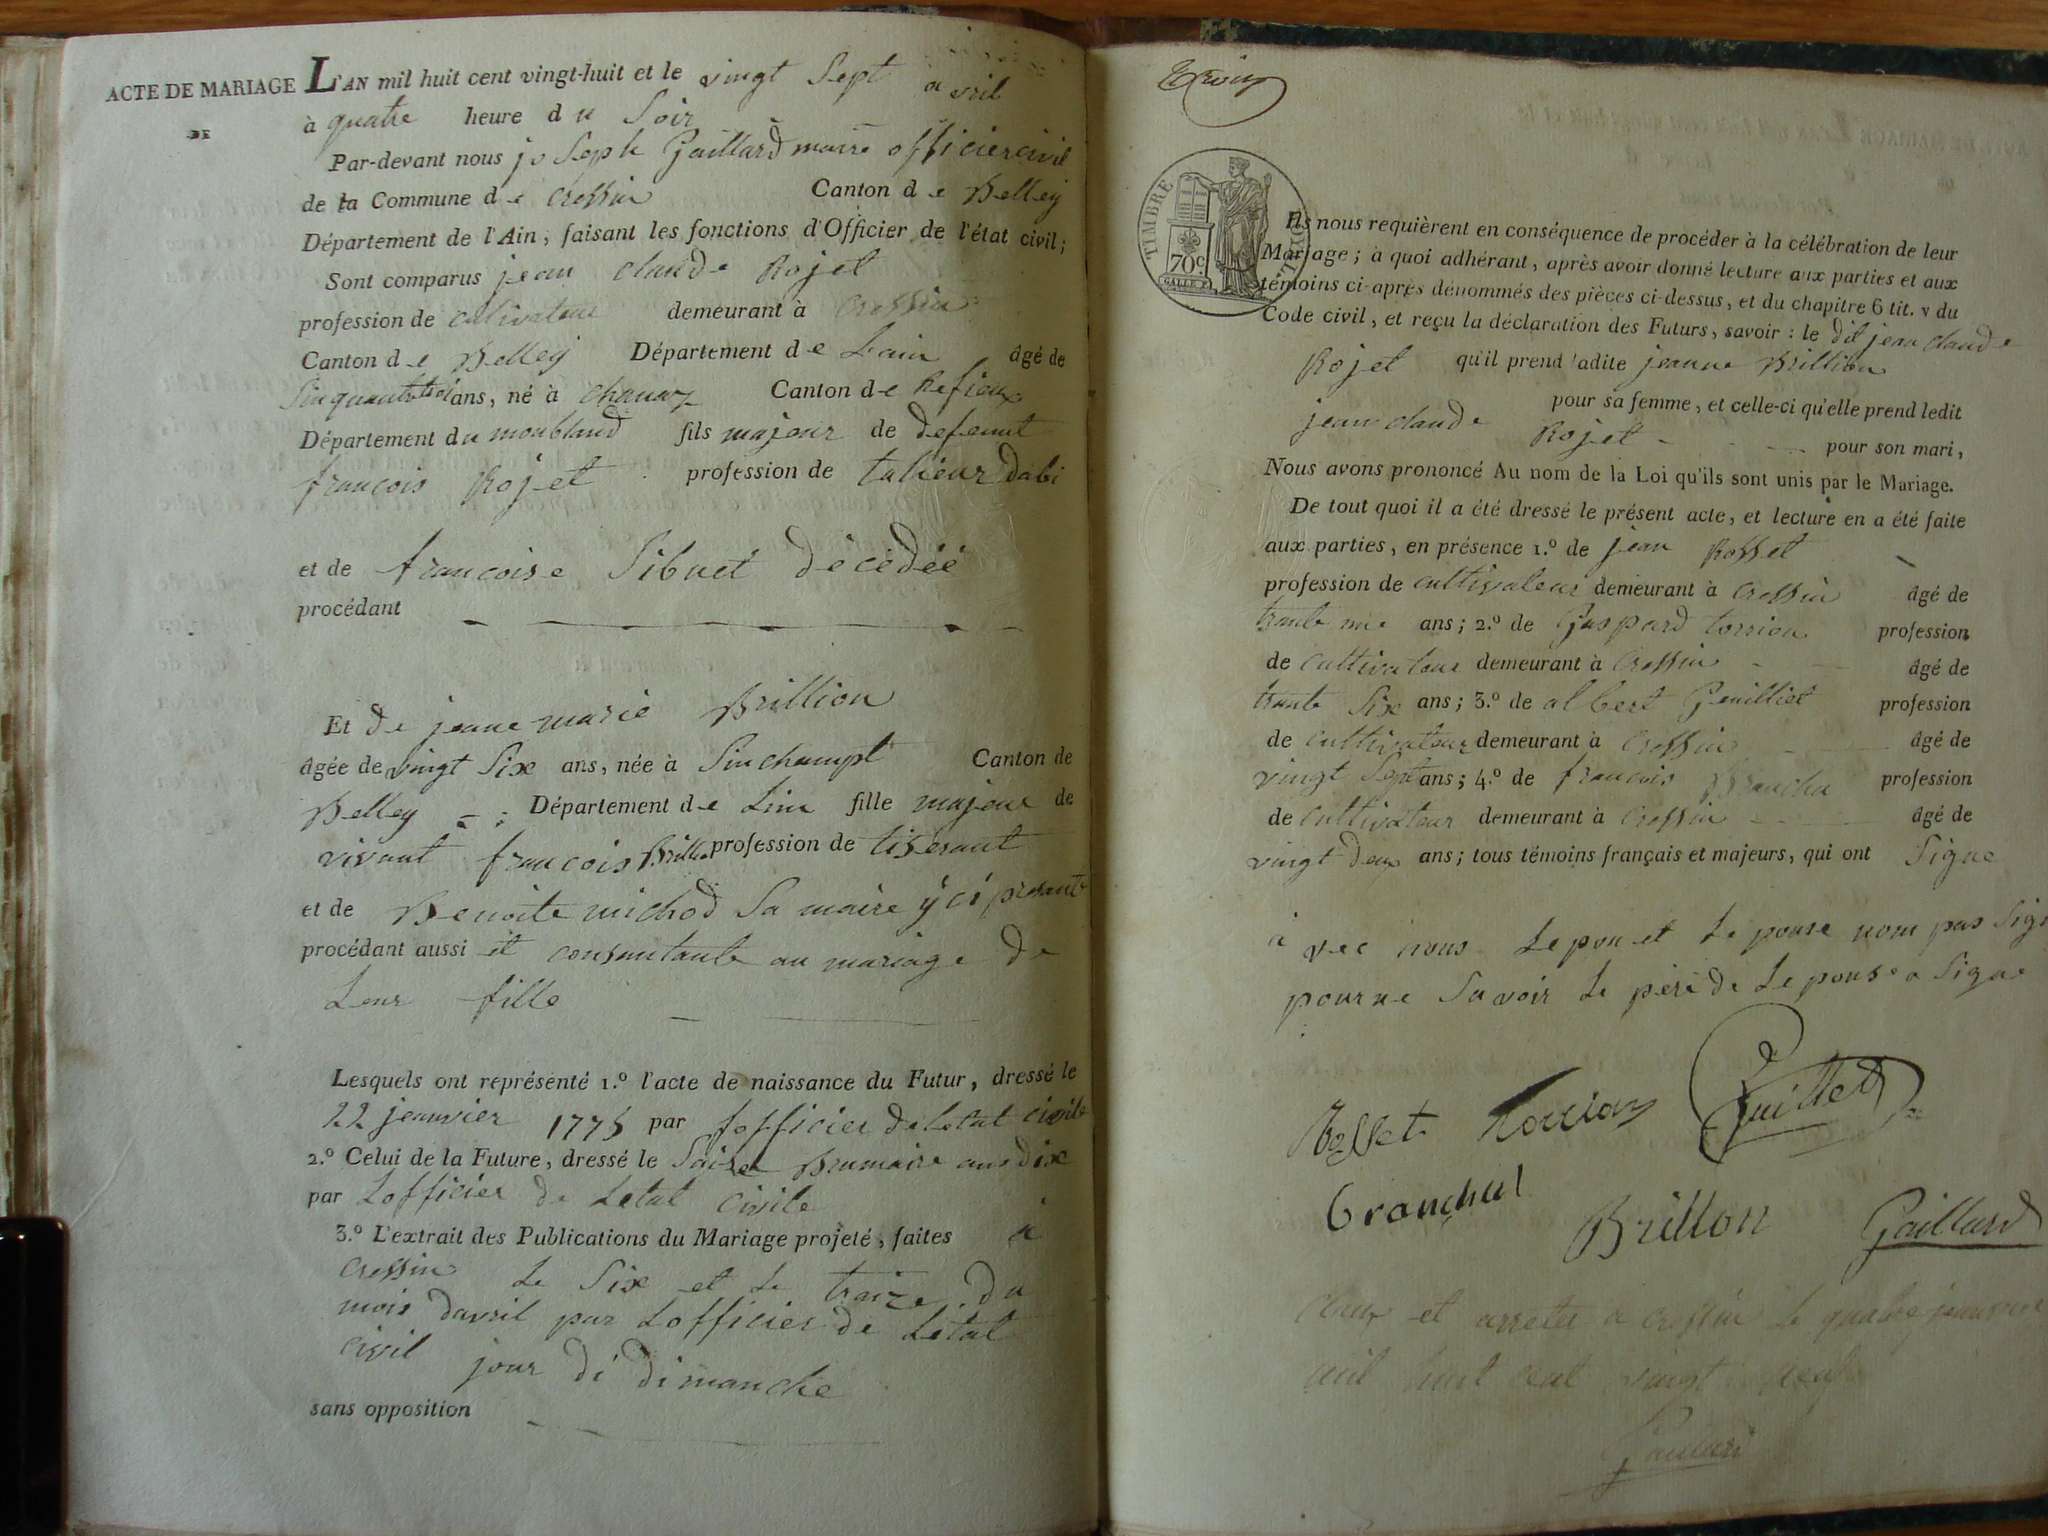 ACTE DE MARIAGE
DE
L'AN mil huit cent vingt-huit et le vingt Sept avril
à quatre heure du Soir
Par-devant nous joseph Gaillard maire officier civil
de la Commune de Cressin Canton de Belley
Département de l'Ain, faisant les fonctions d'Officier de l'état civil;
Sont comparus jean claude Rojet
profession de cultivateur demeurant à Cressin
Canton de Belley Département de Lain âgé de
Sinquante ans, né à chanaz Canton de
Département du moubland fils majeur de defeunt
francois Rojet profession de talieur dabi
et de francoise Sibuet décédéé
procédant
Et de jeane marie Brillion
âgée de vingt Six ans, née à Sinchampt Canton de
Belley Département de Lein fille majeur de
vivant francois Brillion profession de tiserant
et de Benoite michod Sa maire y ci presante
procédant aussi et consantante au mariage de
Leur fille
Lesquels ont représenté 1.º l'acte de naissance du Futur, dressé le
22 jeanvier 1775 par Lofficier de letat civile
2.º Celui de la Future, dressé le Saize Brumaire ans dix
par Lofficier de Letat civile
3.º L'extrait des Publications du Mariage projeté, faites à
Cressin Le Six et Le traize du
mois davril par Lofficier de Letat
civil jour di dimanche
sans opposition
TIMBRE ROYAL
70c
GALLE F.
Ils nous requièrent en conséquence de procéder à la célébration de leur
Mariage; à quoi adhérant, après avoir donné lecture aux parties et aux
témoins ci-après dénommés des pièces ci-dessus, et du chapitre 6 tit. v du
Code civil, et reçu la déclaration des Futurs, savoir: le dit jean claude
Rojet qu'il prend ladite jeanne Brillion
pour sa femme, et celle-ci qu'elle prend ledit
jean claude Rojet pour son mari,
Nous avons prononcé Au nom de la Loi qu'ils sont unis par le Mariage.
De tout quoi il a été dressé le présent acte, et lecture en a été faite
aux parties, en présence 1.º de jean Rosset
profession de cultivateur demeurant à Cressin âgé de
trante ans; 2.º de Gaspard torrion profession
de cultivateur demeurant à Cressin âgé de
trante Six ans; 3.º de albert Geuilliet profession
de cultivateur demeurant à Cressin âgé de
vingt Sept ans; 4.º de francois profession
de cultivateur demeurant à Cressin âgé de
vingt deux ans; tous témoins français et majeurs, qui ont Signe
a vec nous Lepou et Le pouse nom pas Sign
pour ne Savoir Le père de Le pouse a Signe
Rosset Torrion Guillet
Branchut Brillon Gaillard
Claux et arreter a cressin le quatre jeanvier
mil huit cent vingt neuf
Gaillard